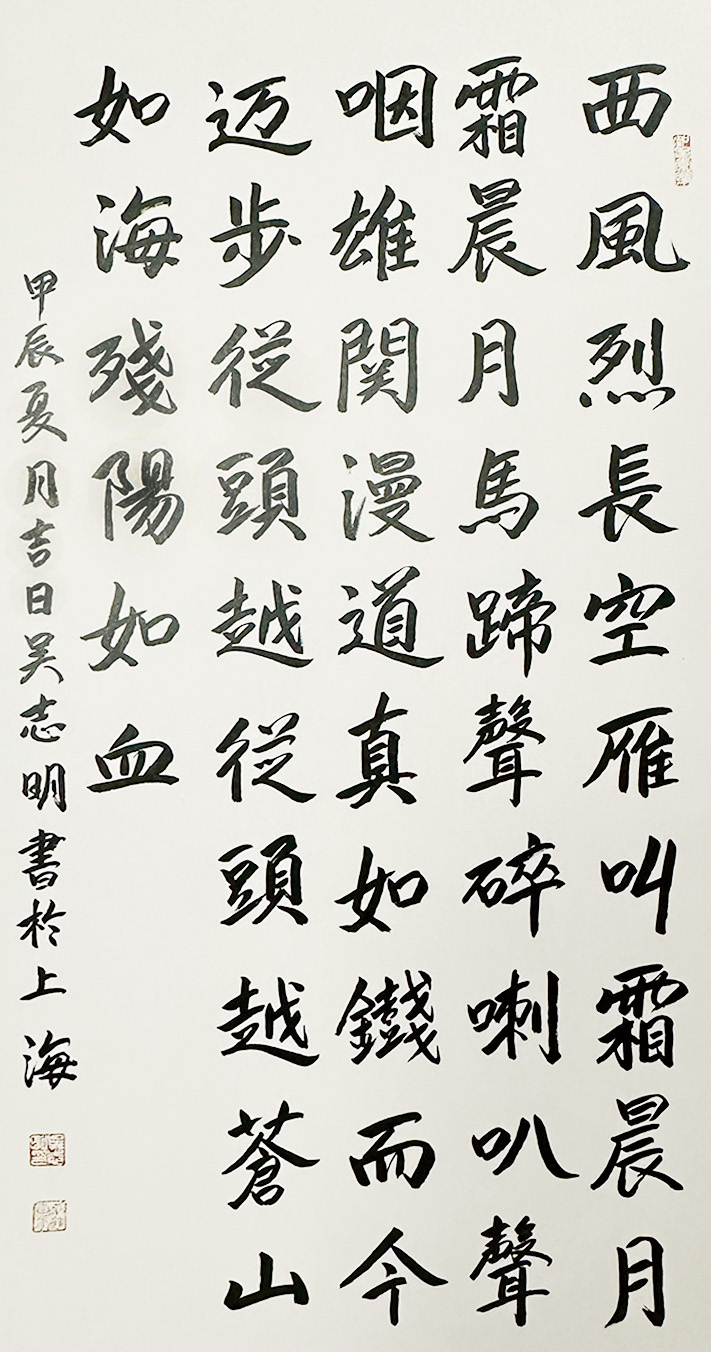 西風烈長空雁叫霜晨月
霜晨月馬蹄聲碎喇叭聲
咽雄関漫道真如鐵而今
迈步從頭越從頭越蒼山
如海殘陽如血
甲辰夏月吉日吴志明書於上海